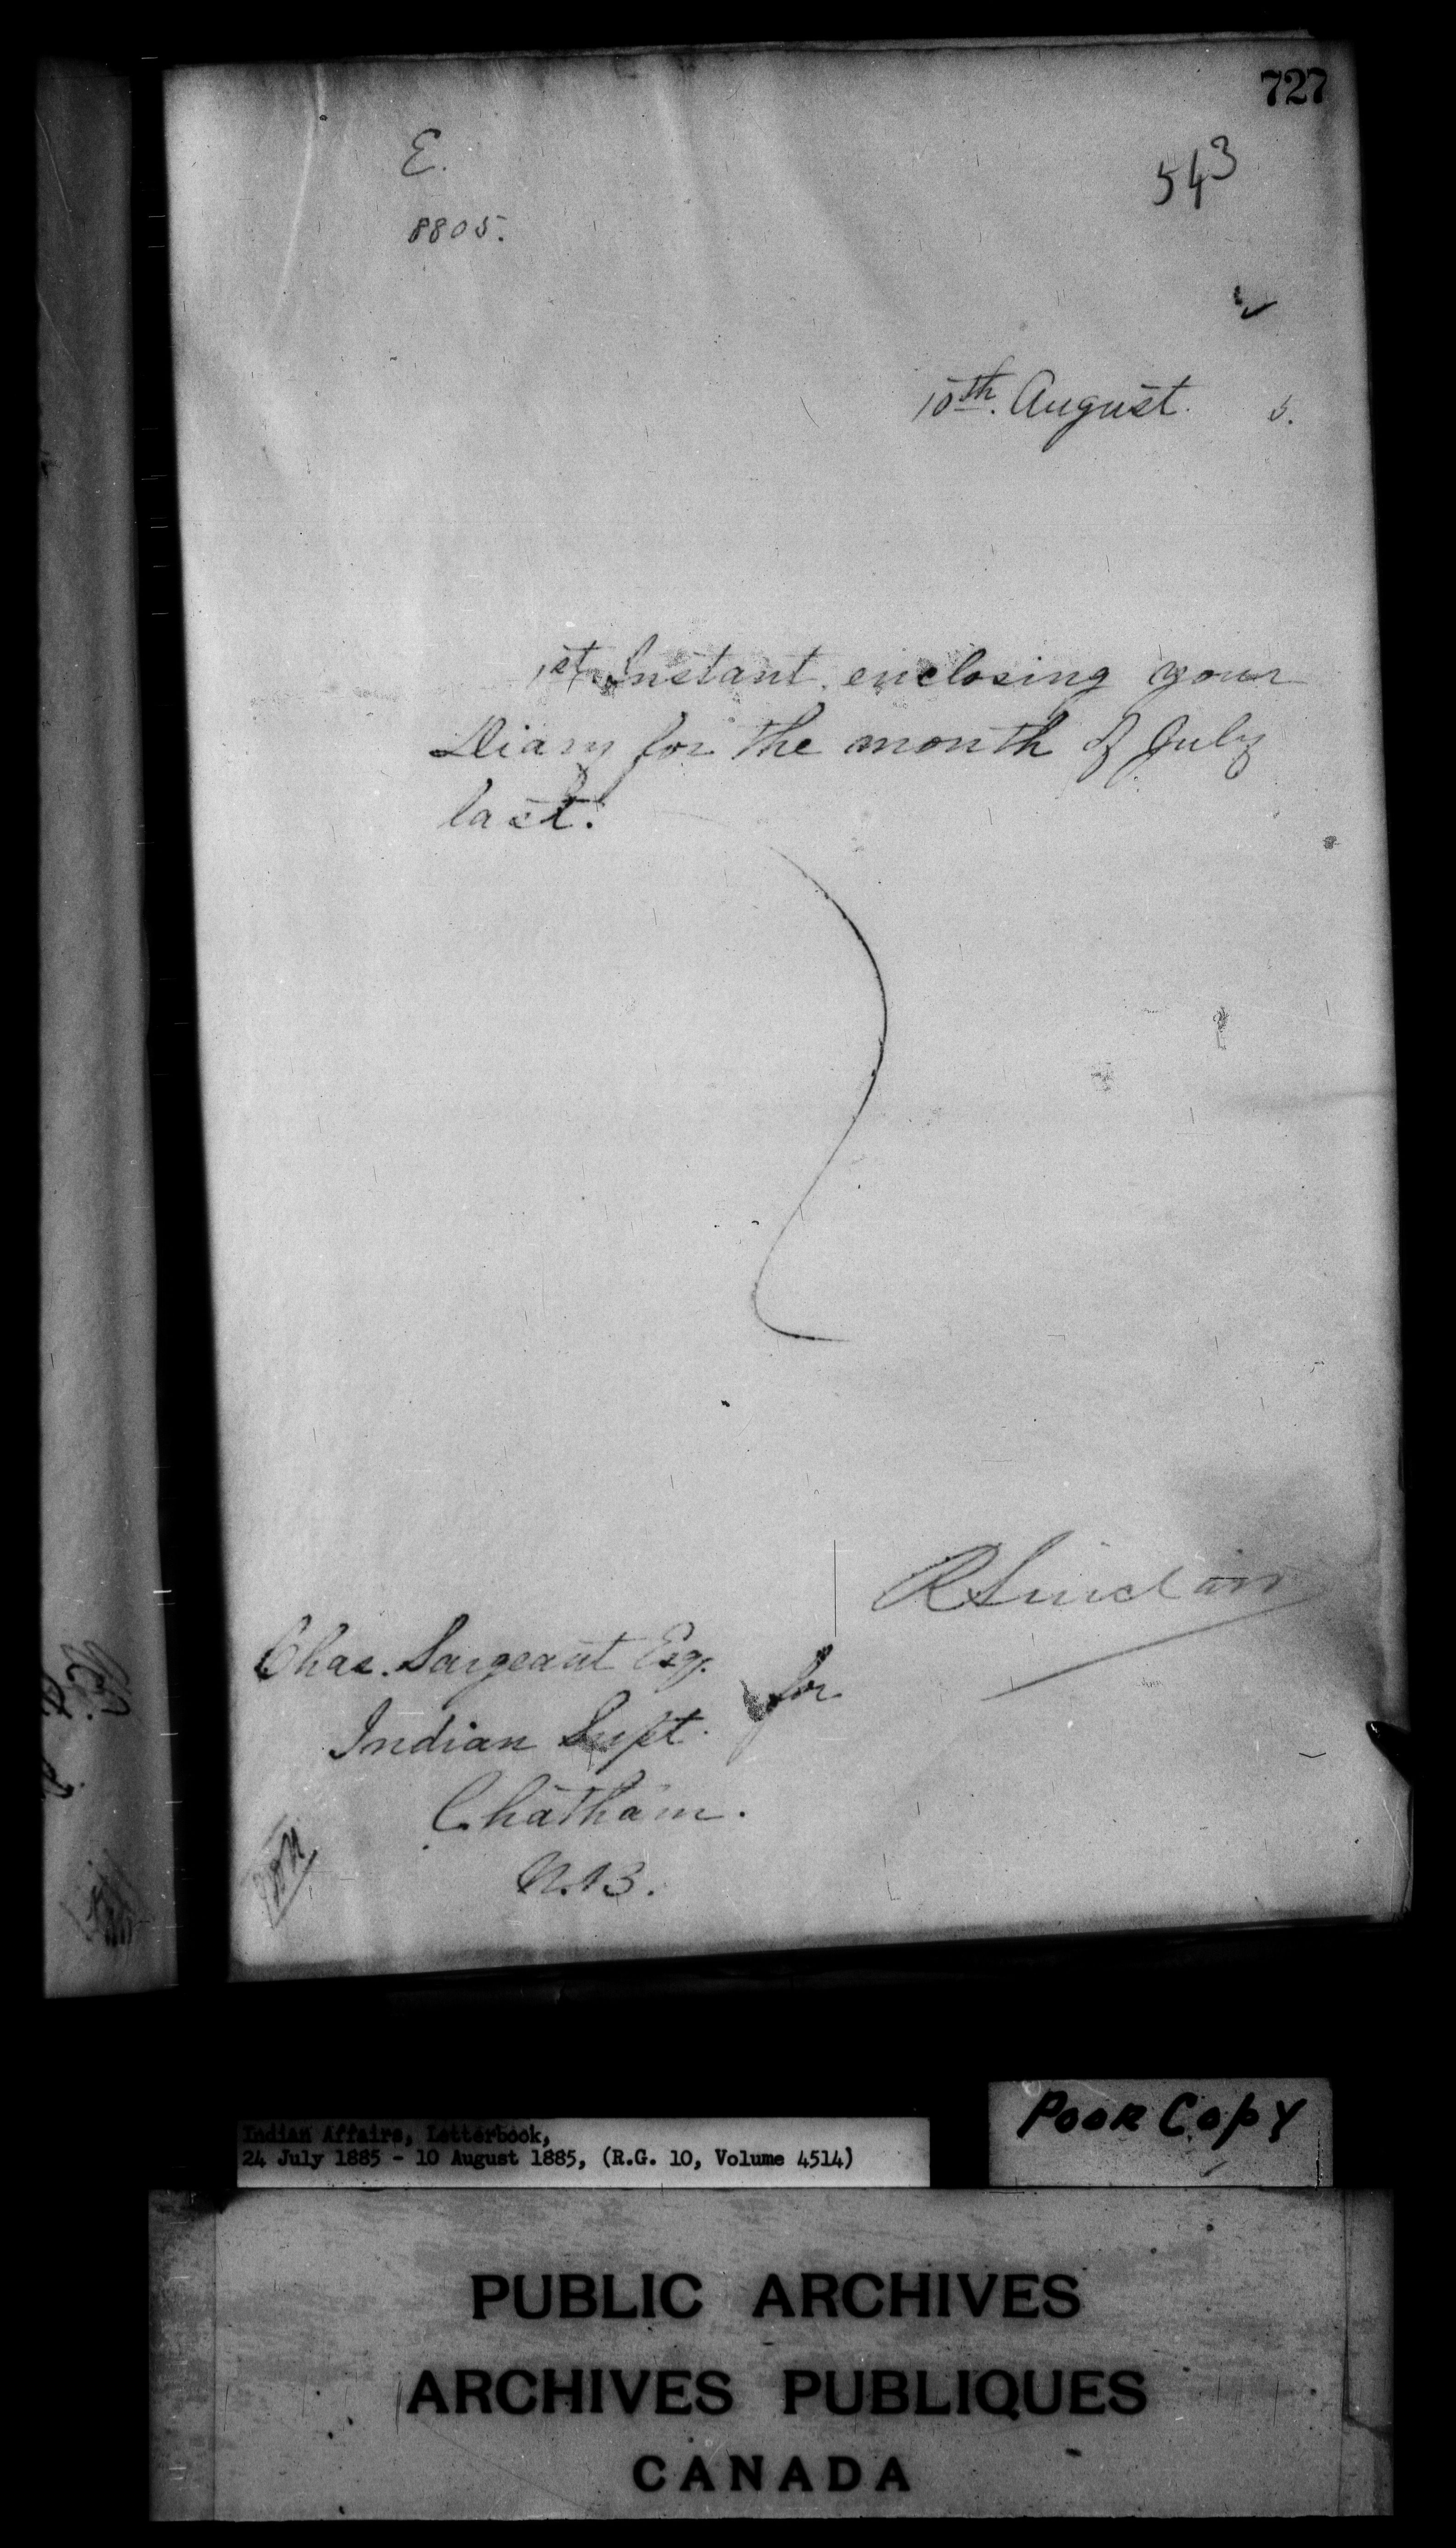 727
E.
543
8805.
10th. August. 5.
1st Instant enclosing your
Diary for the month of July
last.
R Sinclair
Chas. Sargeant Esq.
for
Indian Supt.
Chatham.
N.B.
Indian Affairs, Letterbook,
24 July 1885 - 10 August 1885, (R.G. 10, Volume 4514)
POOR COPY
PUBLIC ARCHIVES
ARCHIVES PUBLIQUES
CANADA